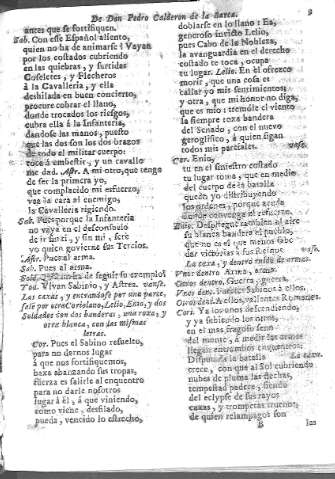 De Don Pedro Calderon de la Barca. 9
antes que se fortifiquen.
Sab. Con este Español aliento,
quien no ha de animarse? Vayan
por los costados cubriendo
en las quiebras, y surtidas
Coseletes, y Flecheros
à la Cavalleria, y ella
deshilada en buen concierto,
procure cobrar el llano,
donde trocados los riesgos,
cubra ella à la Infanteria,
dandose las manos, puesto
que las dos son los dos brazos
de todo el militar cuerpo:
toca à embestir, y un cavallo
me dad. Astr. A mi otro, que tengo
de ser la primera yo,
que complacido mi esfuerzo,
vea la cara al enemigo,
la Cavalleria rigiendo.
Sab. Pues porque la Infanteria
no vaya en el desconsuelo
de ir sin ti, y sin mi, serè
yo quien govierne sus Tercios.
Astr. Pues al arma.
Sab. Pues al arma.
seguir su exemplo?
Tod. Vivan Sabinio, y Astrea. vanse.
Las caxas, y entrandose por una parte,
salen por otra Coriolano, Lelio, Enio, y dos
Soldados con dos banderas, una roxa, y
otra blanca, con las mismas
letras.
Cor. Pues el Sabino resuelto,
para no dernos lugar
à que nos fortifiquemos,
baxa abanzando sus tropas,
fuerza es salirle al encuentro
para no darle nosotros
lugar à èl, à que viniendo,
como viene, desfilado,
pueda, vencido lo estrecho,
doblarse en lo llano: Ea,
generoso invicto Lelio,
pues Cabo de la Nobleza,
la avanguardia en el derecho
costado te toca, ocupa
tu lugar. Lelio. En èl ofrezco
morir, que una cosa es
callar yo mis sentimientos,
y otra, que mi honor no diga,
que es mio: tremòle el viento
la siempre roxa bandera
del Senado, con el nuevo
geroglifico, à quien sigan
todos mis parciales. vase.
Cor. Enio,
tu en el siniestro costado
tu lugar toma, que en medio
del cuerpo de la batalla
quedo yo distribuyendo
los ordenes, porque acuda
donde convenga el refuerzo.
Enio. Despliegue tambien al ayre
su blanca bandera el pueblo,
que no es el que menos sabe
dar victorias à sus vase.
La caxa, y dentro ruido de armas.
Unos dentro. Arma, arma.
Otros dentro. Guerra, guerra.
Unos dent. Fuertes Sabinos à ellos.
Otros dent. A ellos, valientes Romanos.
Cor. Ya los unos descendiendo,
y ya subiendo los otros,
en el mas fragoso seno
del monte, à medir las armas
llegan entrambos encuentros:
Disputada la batalla La caxa.
crece, con que al Sol cubriendo
nubes de pluma las flechas,
tempestad padece, siendo
del eclypse de sus rayos
caxas, y trompetas truenos,
de quien relampagos son
B los